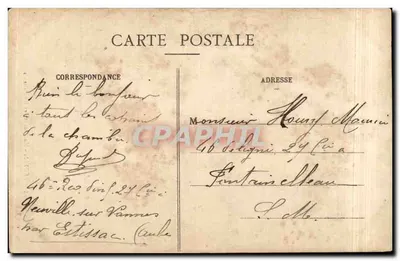 CARTE POSTALE
CORRESPONDANCE
Bien le bonjour
à tout les
de la chambre
46e 27e Cie à
Neuville sur Vannes
par Estissac (Aube
ADRESSE
Monsieur
46 de ligne 27 Cie à
Fontainebleau
S. M.
CPAPHIL